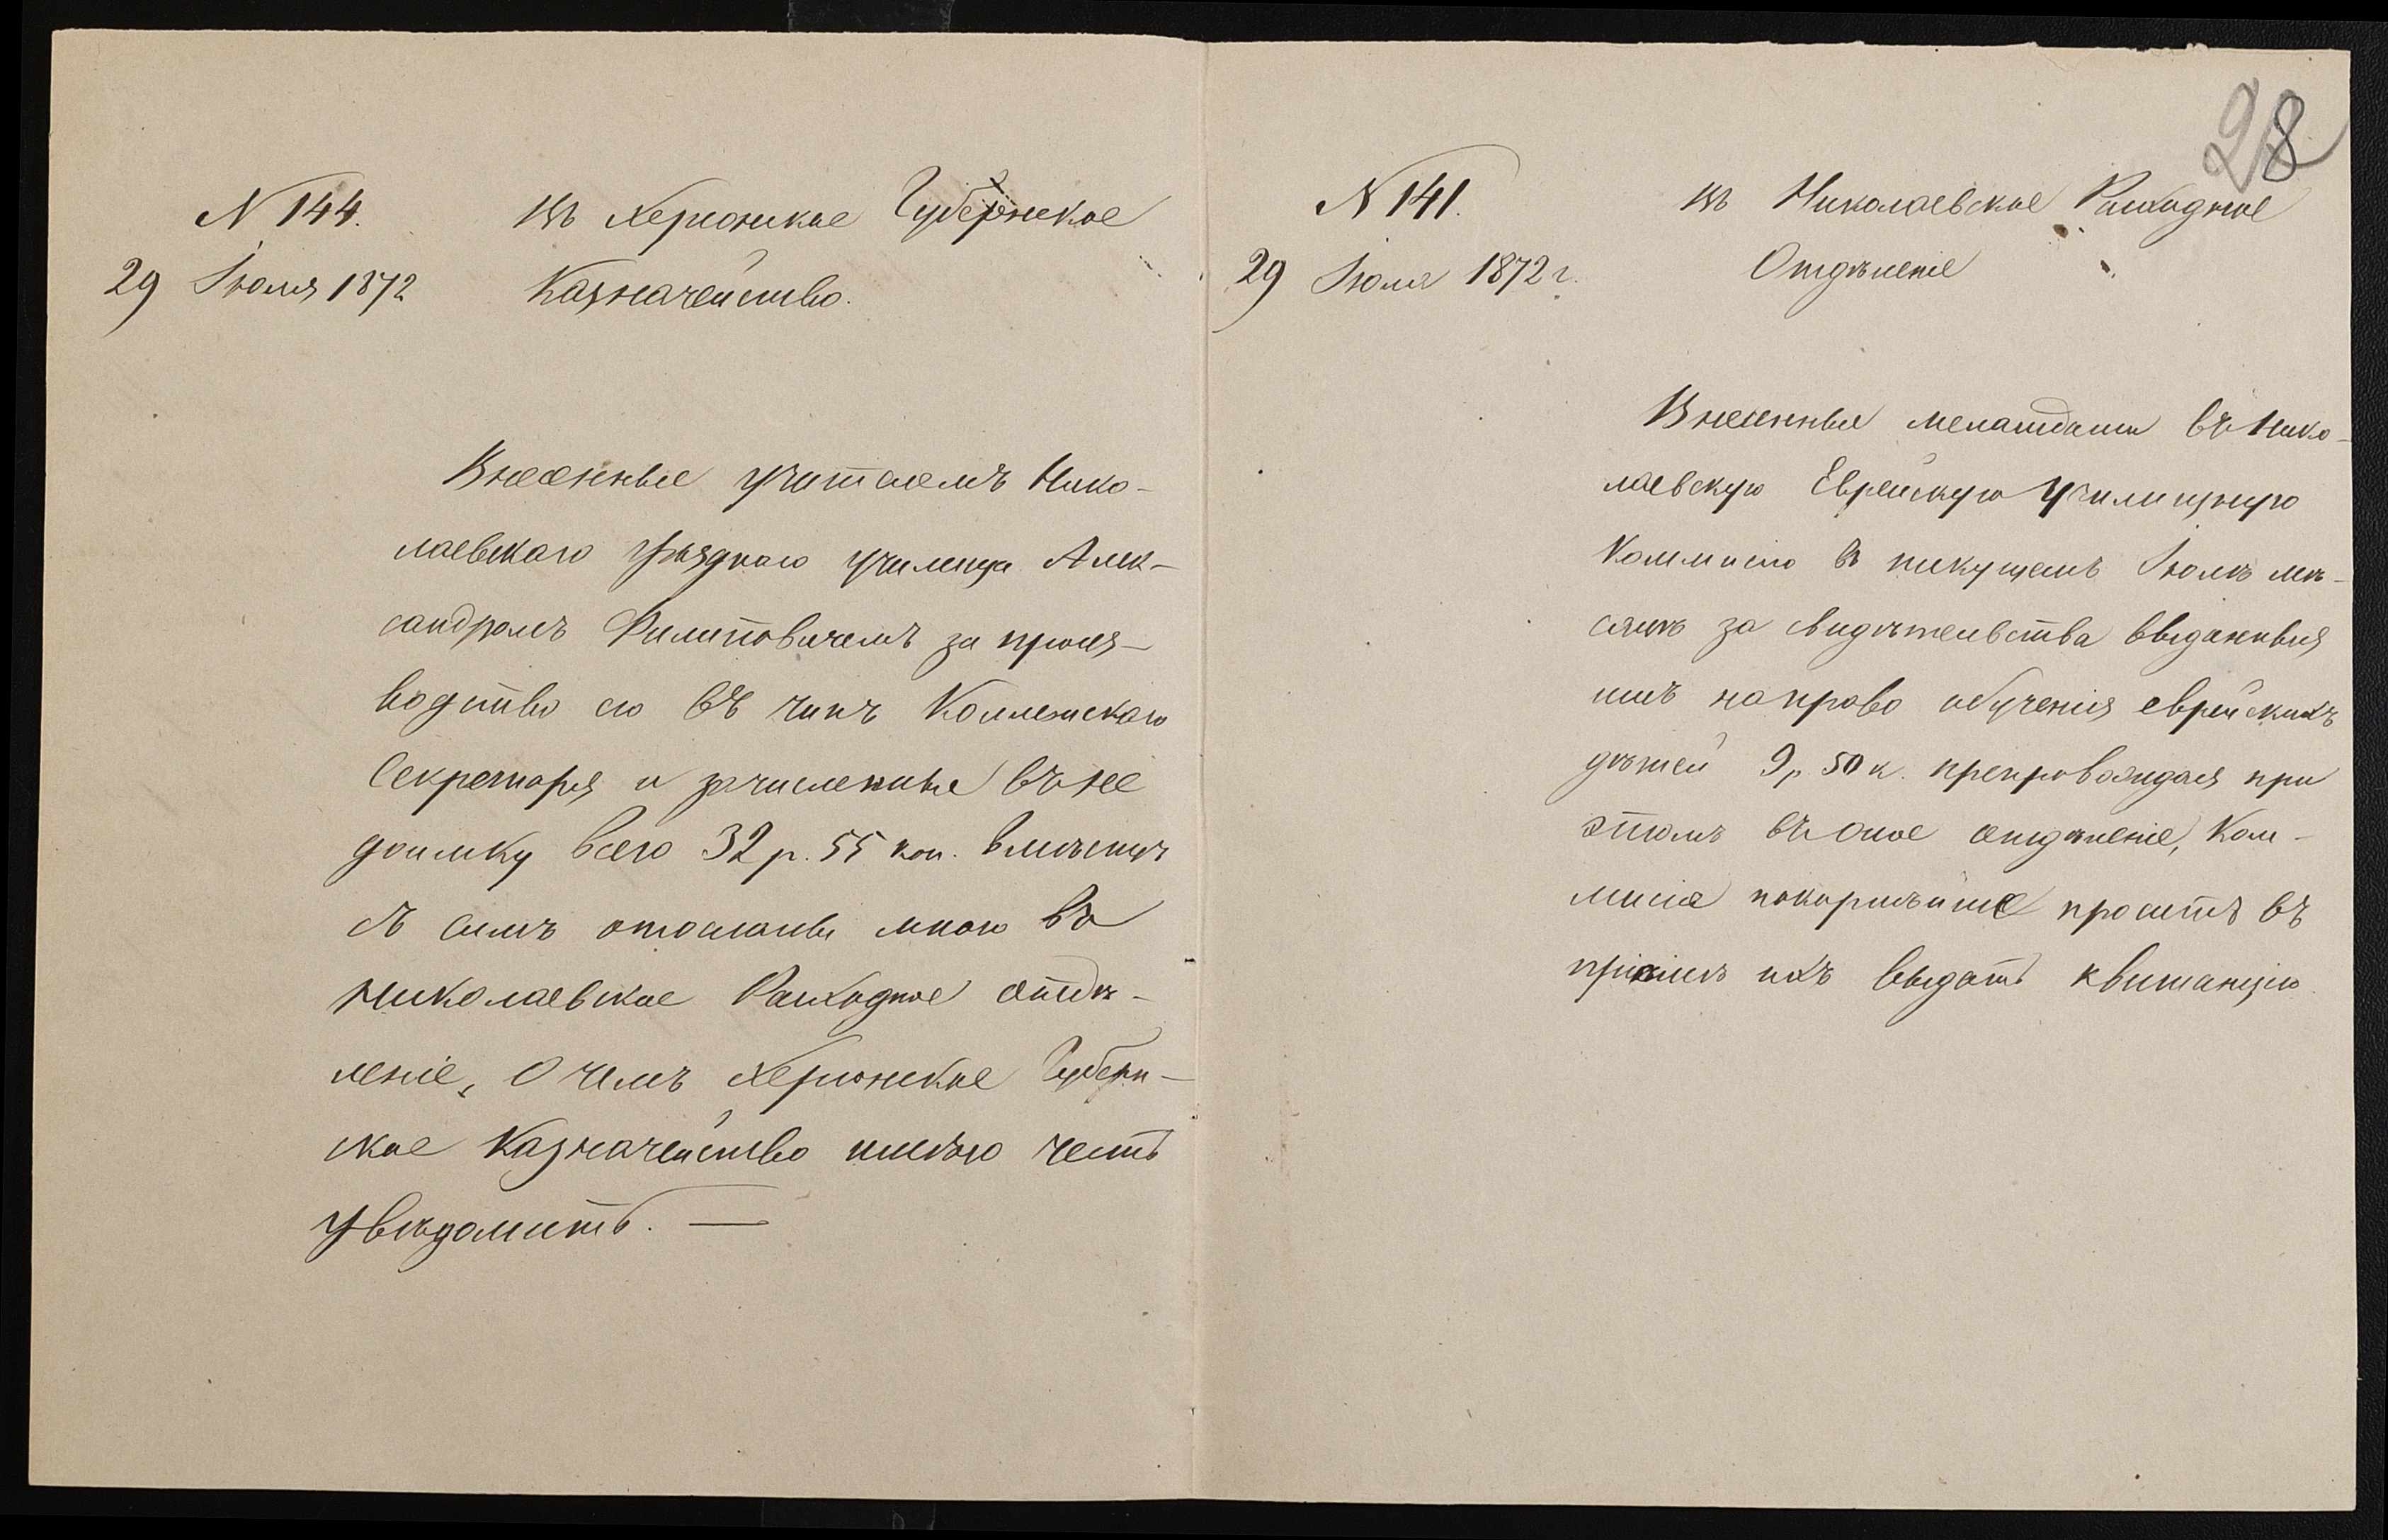 N 144.
Въ Херсонское Губернское
29 Іюля 1872
Казначейство.
Внесенные учителемъ Нико-
лаевскаго уѣзднаго училища Алек-
сандромъ Филиповичемъ за произ-
водство его въ чинъ Коллежскаго
Секретаря и зачисленные въ не
доимку всего 32 р. 55 коп. вмѣстѣ
съ симъ отосланы мною въ
Николаевское Расходное отдѣ-
леніе, о чемъ Херсонское Губерн-
ское Казначейство имѣю честь
увѣдомить. —
28
N 141.
Въ Николаевское Расходное
29 Іюля 1872 г.
Отдѣленіе
Внесенные меламдами въ Нико-
лаевскую Еврейскую Училищную
Коммисію въ текущемъ Іюлѣ мѣ-
сяцѣ за свидѣтельства выданныя
имъ на право обученія еврейскихъ
дѣтей 9 р. 50 к. препровождая при
этомъ въ оное отдѣленіе, Ком-
мисія покорнѣйше проситъ въ
пріемѣ ихъ выдать квитанцію.